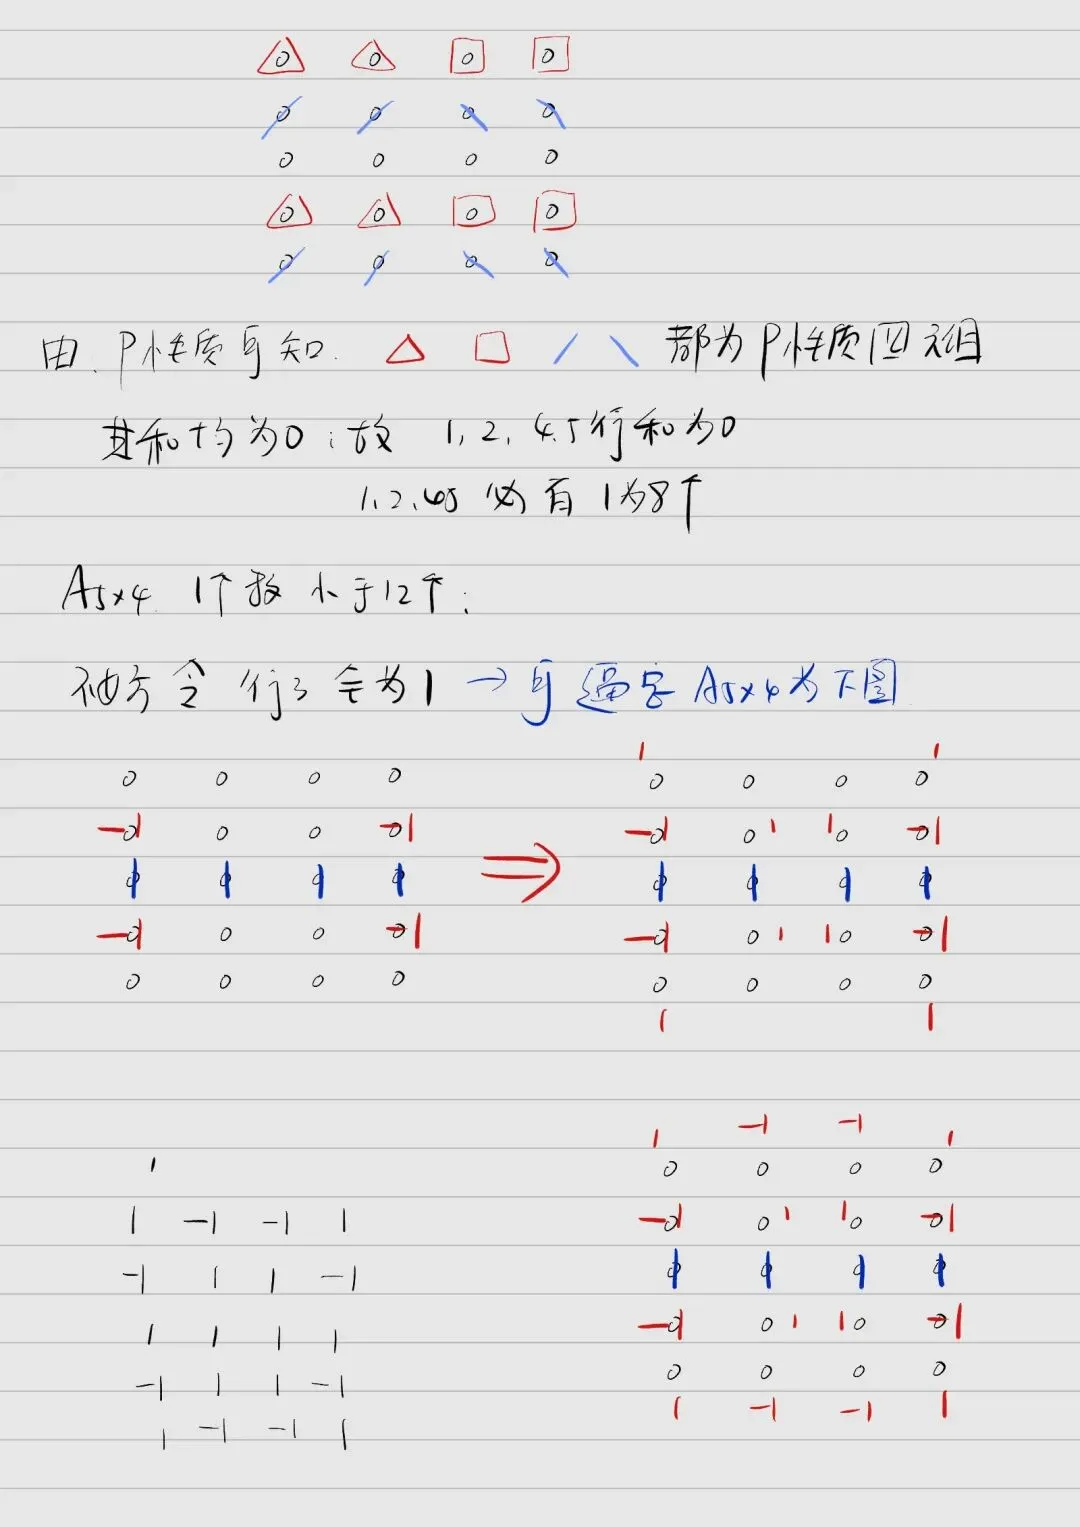 0 0 0 0
0 0 0 0
0 0 0 0
0 0 0 0
0 0 0 0
由. P性质可知. △ □ / \ 都为P性质四元组
其和均为0:故 1,2,4,5行和为0
1,2,45 必有1为8个
A5×4 1个数小于12个:
行3全为1 → 可逼定 A5×4为下图
0 0 0 0
-1 0 0 -1
1 1 1 1
-1 0 0 -1
0 0 0 0
⇒
1 1
0 0 0 0
-1 0 1 1 0 -1
1 1 1 1
-1 0 1 1 0 -1
0 0 0 0
1 1
1
1 -1 -1 1
-1 1 1 -1
1 1 1 1
-1 1 1 -1
1 -1 -1 1
1 -1 -1 1
0 0 0 0
-1 0 1 1 0 -1
1 1 1 1
-1 0 1 1 0 -1
0 0 0 0
1 -1 -1 1